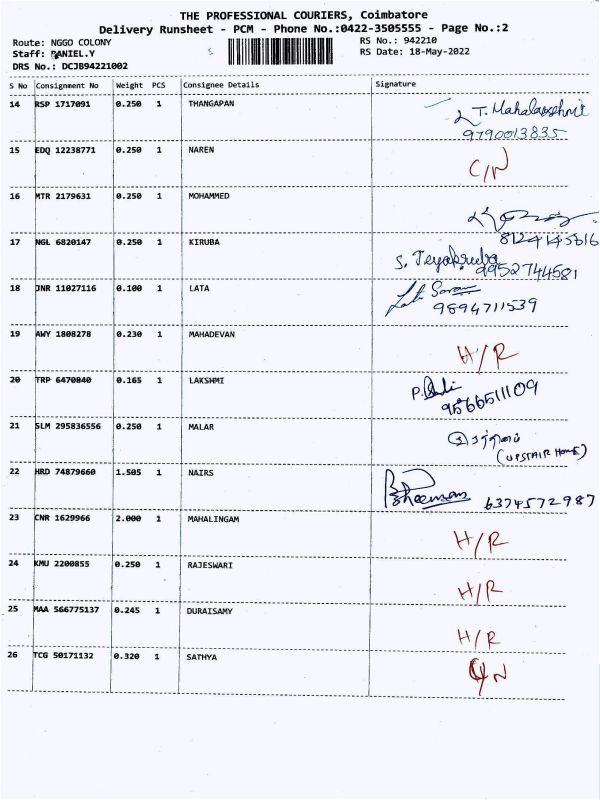 THE PROFESSIONAL COURIERS, Coimbatore
Delivery Runsheet - PCM - Phone No.:0422-3505555 - Page No.:2
Route: NGGO COLONY
Staff: DANIEL.Y
DRS No.: DCJB94221002
RS No.: 942210
RS Date: 18-May-2022
S No Consignment No Weight PCS Consignee Details Signature
14 RSP 1717091 0.250 1 THANGAPAN T. Mahalakshmi
9790013835
15 EDQ 12238771 0.250 1 NAREN C/N
16 MTR 2179631 0.250 1 MOHAMMED
8124145616
17 NGL 6820147 0.250 1 KIRUBA S. Jeyakruba
9952744581
18 JNR 11027116 0.100 1 LATA
9894711539
19 AWY 1808278 0.230 1 MAHADEVAN H/R
20 TRP 6470840 0.165 1 LAKSHMI P.
9566511109
21 SLM 295836556 0.250 1 MALAR
(UPSTAIR HOME)
22 HRD 74879660 1.505 1 NAIRS 6374572987
23 CNR 1629966 2.000 1 MAHALINGAM H/R
24 KMU 2200855 0.250 1 RAJESWARI H/R
25 MAA 566775137 0.245 1 DURAISAMY H/R
26 TCG 50171132 0.320 1 SATHYA